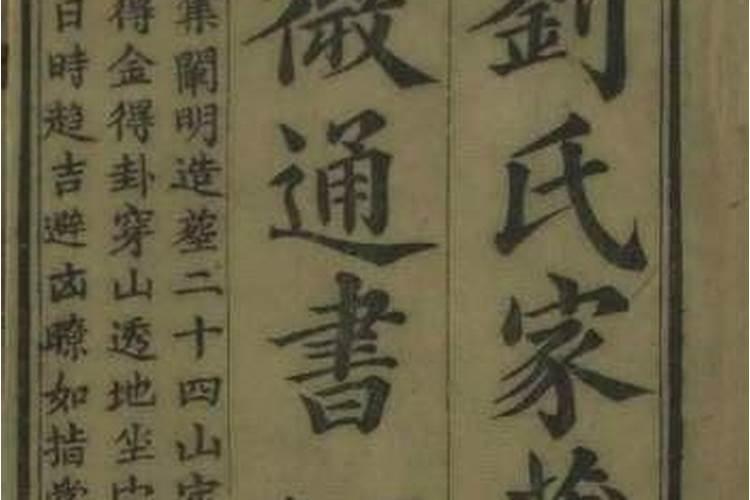 劉氏家
微通書
集闡明造塟二十四山
得金得卦穿山透地坐
日時趨吉避凶瞭如指掌